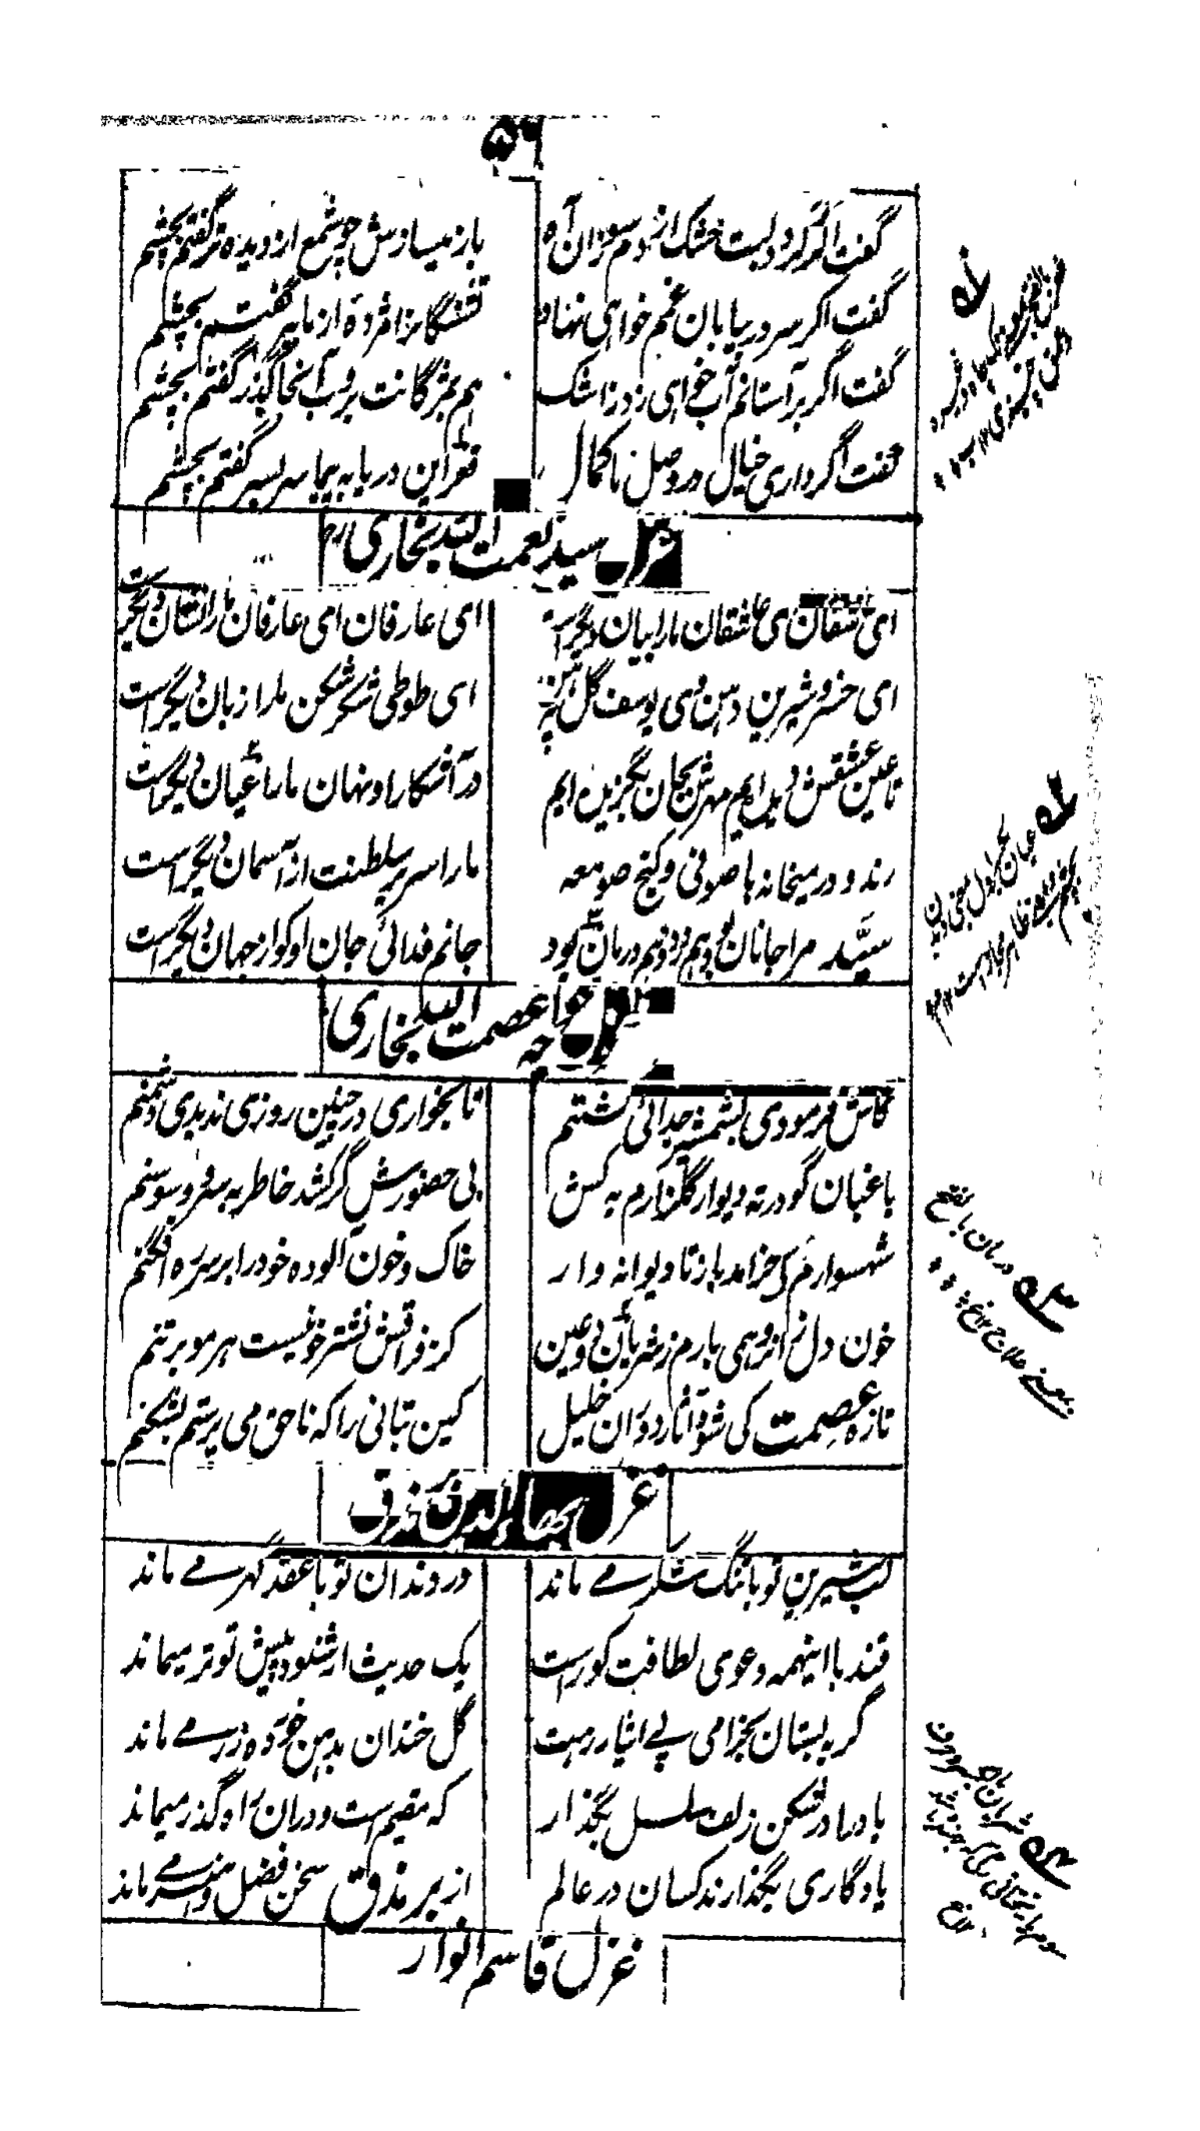 ۵۶
گفت اگر گردد لبت خشک از دم سوزان آه
باز میسازش چو شمع از دیده تر گفتم بچشم
گفت اگر سر در بیابان غم خواهی نهاد
تشنگانرا مژده از ما ببر گفتم بچشم
گفت اگر بر آستانم آب خواهی زد ز اشک
هم بمژگانت بروب آنجا گذر گفتم بچشم
گفت اگر داری خیال در وصل ما کمال
قعر این دریا به پیما سر بسر گفتم بچشم
غزل سید نعمت الله بخاری رح
ای عاشقان ای عاشقان ما را بیان دیگر است
ای عارفان ای عارفان ما را نشان دیگر است
ای خسرو شیرین دهن وی یوسف گل پیرهن
ای طوطی شکر شکن ما را زبان دیگر است
تا عین عشقش دیده ایم مهرش بجان بگزیده ایم
در آشکارا و نهان ما را عیان دیگر است
رند و در میخانه ها صوفی و کنج صومعه
ما را سریر سلطنت از آسمان دیگر است
سید مرا جانان بود هم درد و هم درمان بود
جانم فدائی جان او کو از جهان دیگر است
غزل خواجه عصمت الله بخاری
کاش فرمودی بشمشیر جدائی کشتنم
تا بخواری در چنین روزی ندیدی دشمنم
باغبان گو در ته دیوار گلزارم بکش
بی حضورش گر کشد خاطر بسرو و سوسنم
شهسوارم کی خرامد باز تا دیوانه وار
خاک و خون آلوده خود را بر سر ره افگنم
خون دل زانرو همی بارم ز شریان دو عین
کز فراقش نشتر خونیست هر مو بر تنم
تازه عصمت کی شود آثار دوران خلیل
کین بتانی را که ناحق می پرستم بشکنم
غزل بهاءالدین مذق
لب شیرین تو با تنگ شکر مے ماند
در دندان تو با عقد گهر مے ماند
قند با اینهمه دعوی لطافت کور است
یک حدیث ار شنود پیش تو تر میماند
گر به بستان بخرامی پے ایثار رهت
گل خندان بدهن خورده زر مے ماند
باد را در شکن زلف مسلسل بگذار
که مقیم است و در ان راه گذر میماند
یادگاری بگذارند کسان در عالم
از بر مذق سخن فضل و هنر مے ماند
غزل قاسم انوار
۵۳ درمان بالفتح
یعنے علاج